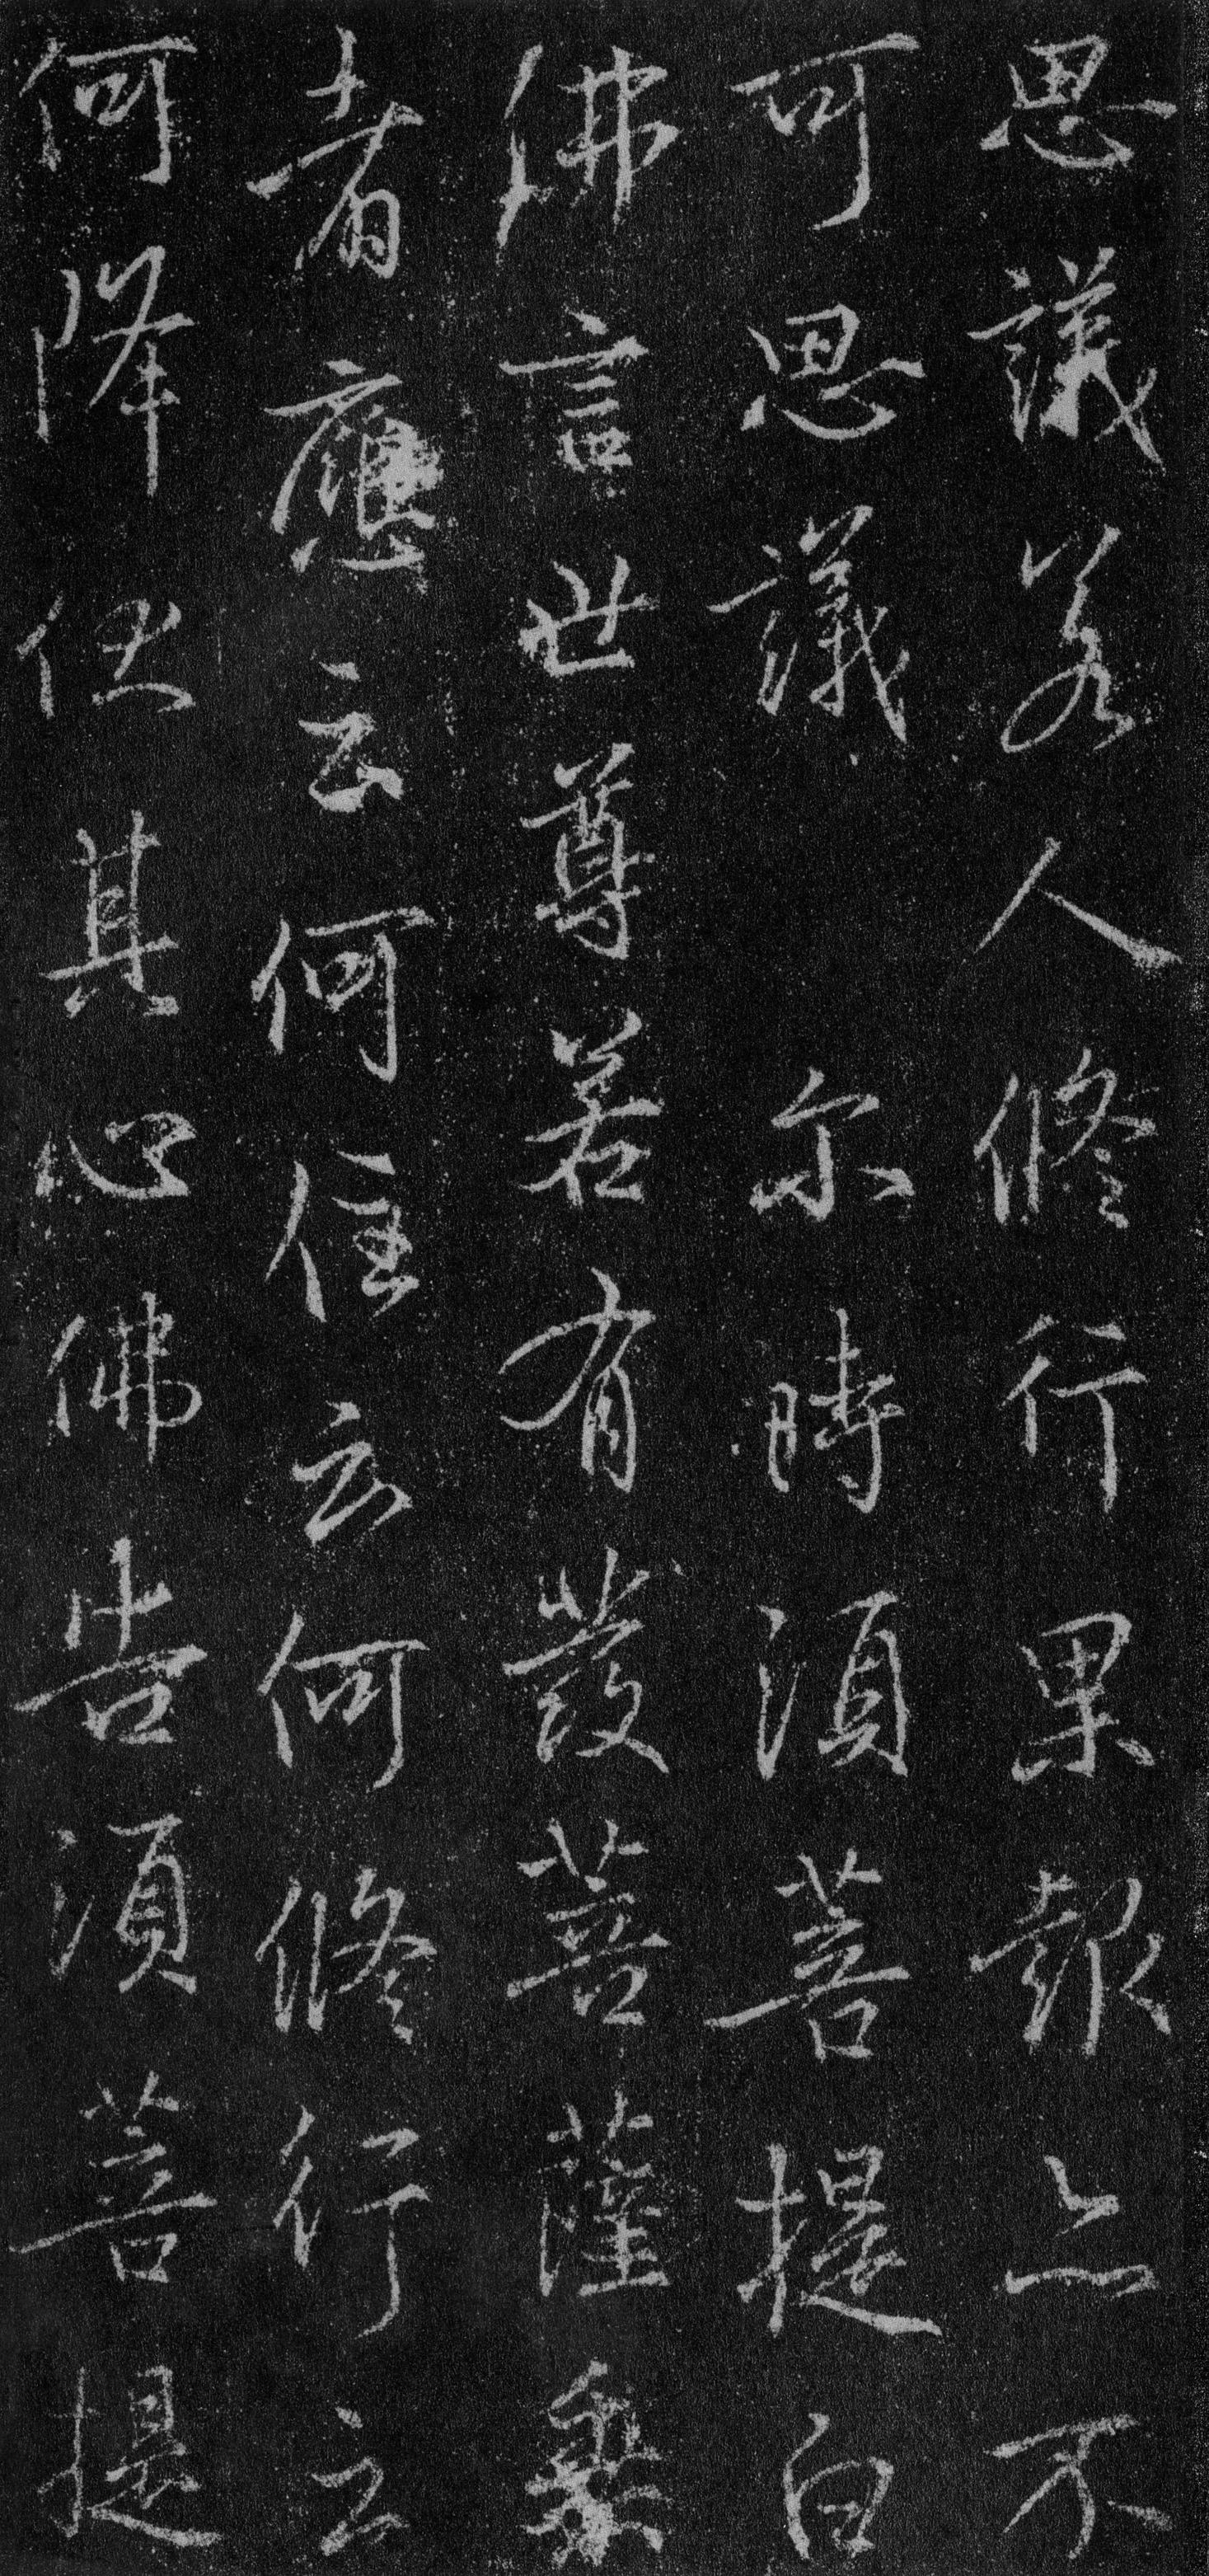 思議若人修行果報亦不
可思議 尔時須菩提白
佛言世尊若有發菩薩乗
者應云何住云何修行云
何降伏其心佛告須菩提